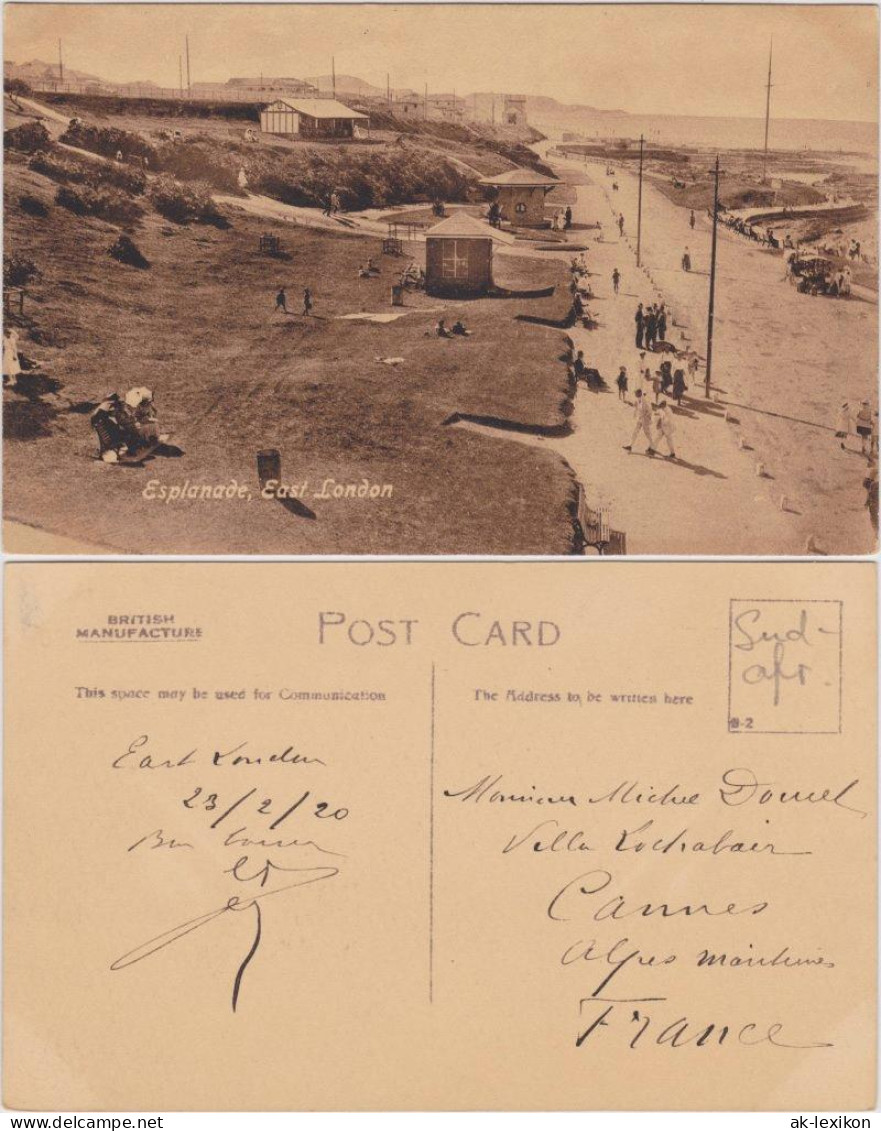 Esplanade, East London
BRITISH
MANUFACTURE
POST CARD
This space may be used for Communication
The Address to be written here
Sud-
afr.
B-2
East London
23/2/20
Monsieur Michel
Villa Lochabair
Cannes
Alpes maritimes
France
ak-lexikon